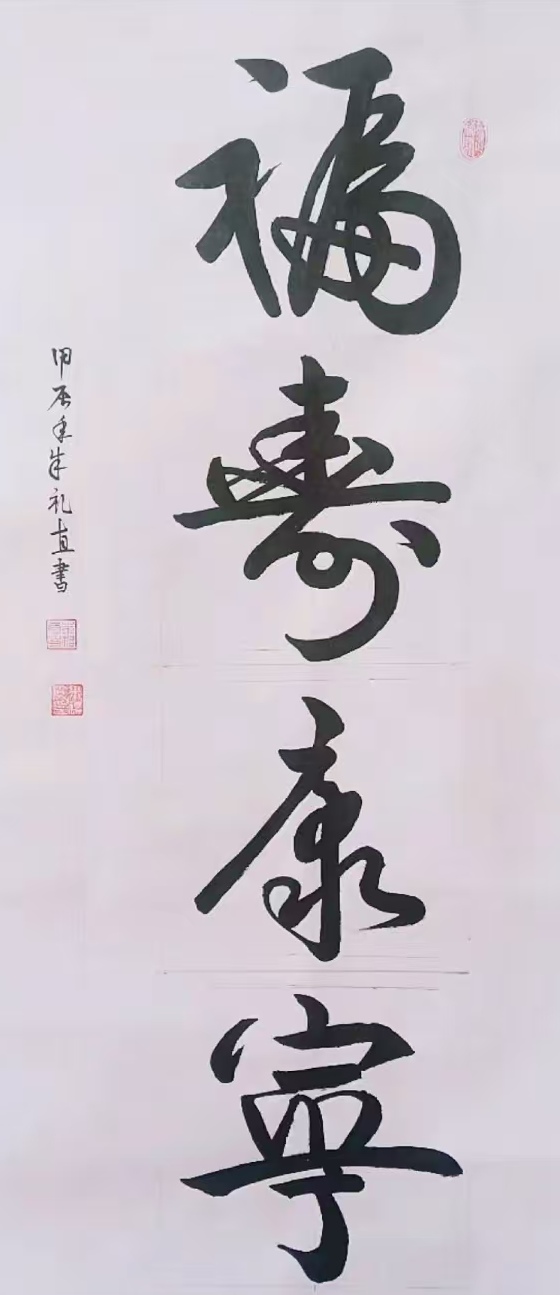 福壽康寧
甲辰年朱礼直書